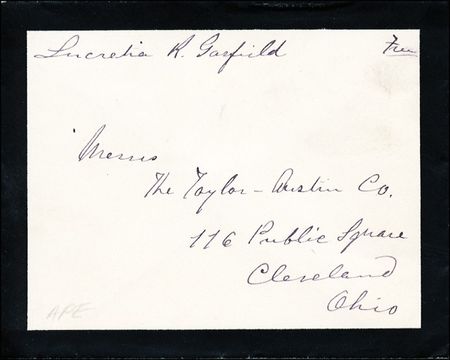 Lucretia R. Garfield Free
Messrs
The Taylor-Austin Co.
116 Public Square
Cleveland
Ohio
APE